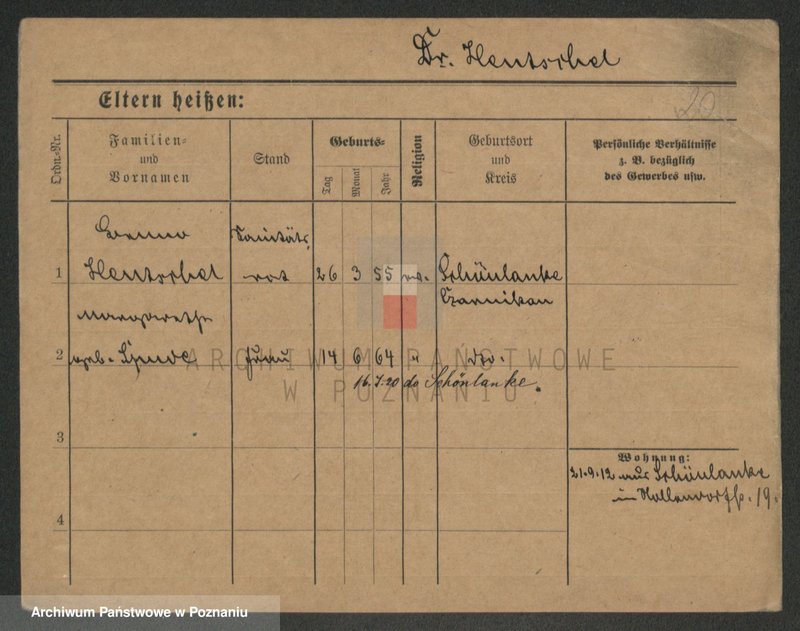 Dr. Hentschel
20
Eltern heißen:
Ordn.-Nr.
Familien-
und
Vornamen
Stand
Geburts-
Tag
Monat
Jahr
Religion
Geburtsort
und
Kreis
Persönliche Verhältnisse
z. B. bezüglich
des Gewerbes usw.
Benno Sanitäts-
1 Hentschel rat 26 3 55 ev. Schönlanke
Czarnikau
Margarethe
2 geb. Frau 14 6 64 " do.
16.7.20 do Schönlanke.
ARCHIWUM PAŃSTWOWE
W POZNANIU
3
Wohnung:
21.9.12 aus Schönlanke
in Hollendorffstr. 19.
4
Archiwum Państwowe w Poznaniu